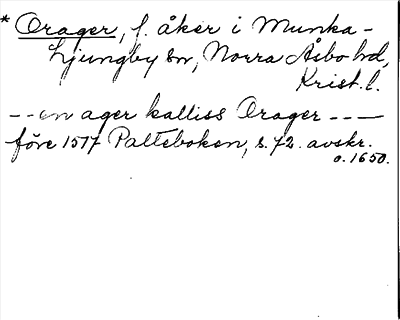 * Orager, f. åker i Munka-
Ljungby sn, Norra Åsbo hd,
Krist. l.
-- en ager kalliss Orager ---
före 1577 Palteboken, s. 72. avskr.
o. 1650.